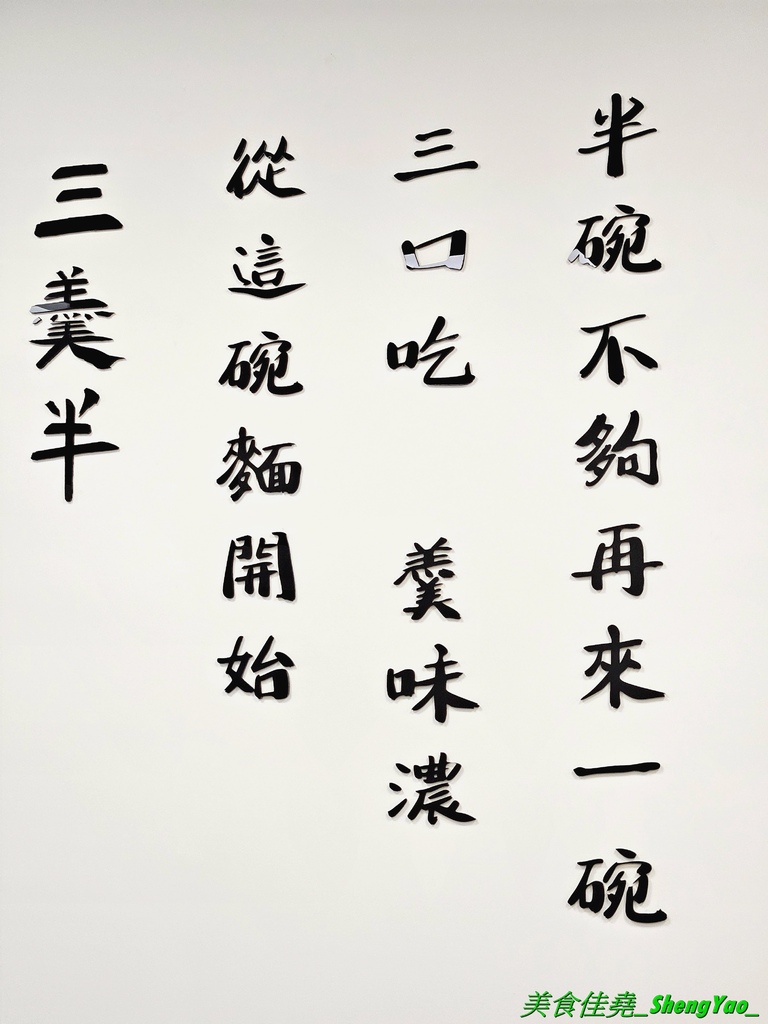 半碗不夠再來一碗
三口吃 羹味濃
從這碗麵開始
三羹半
美食佳堯_ShengYao_